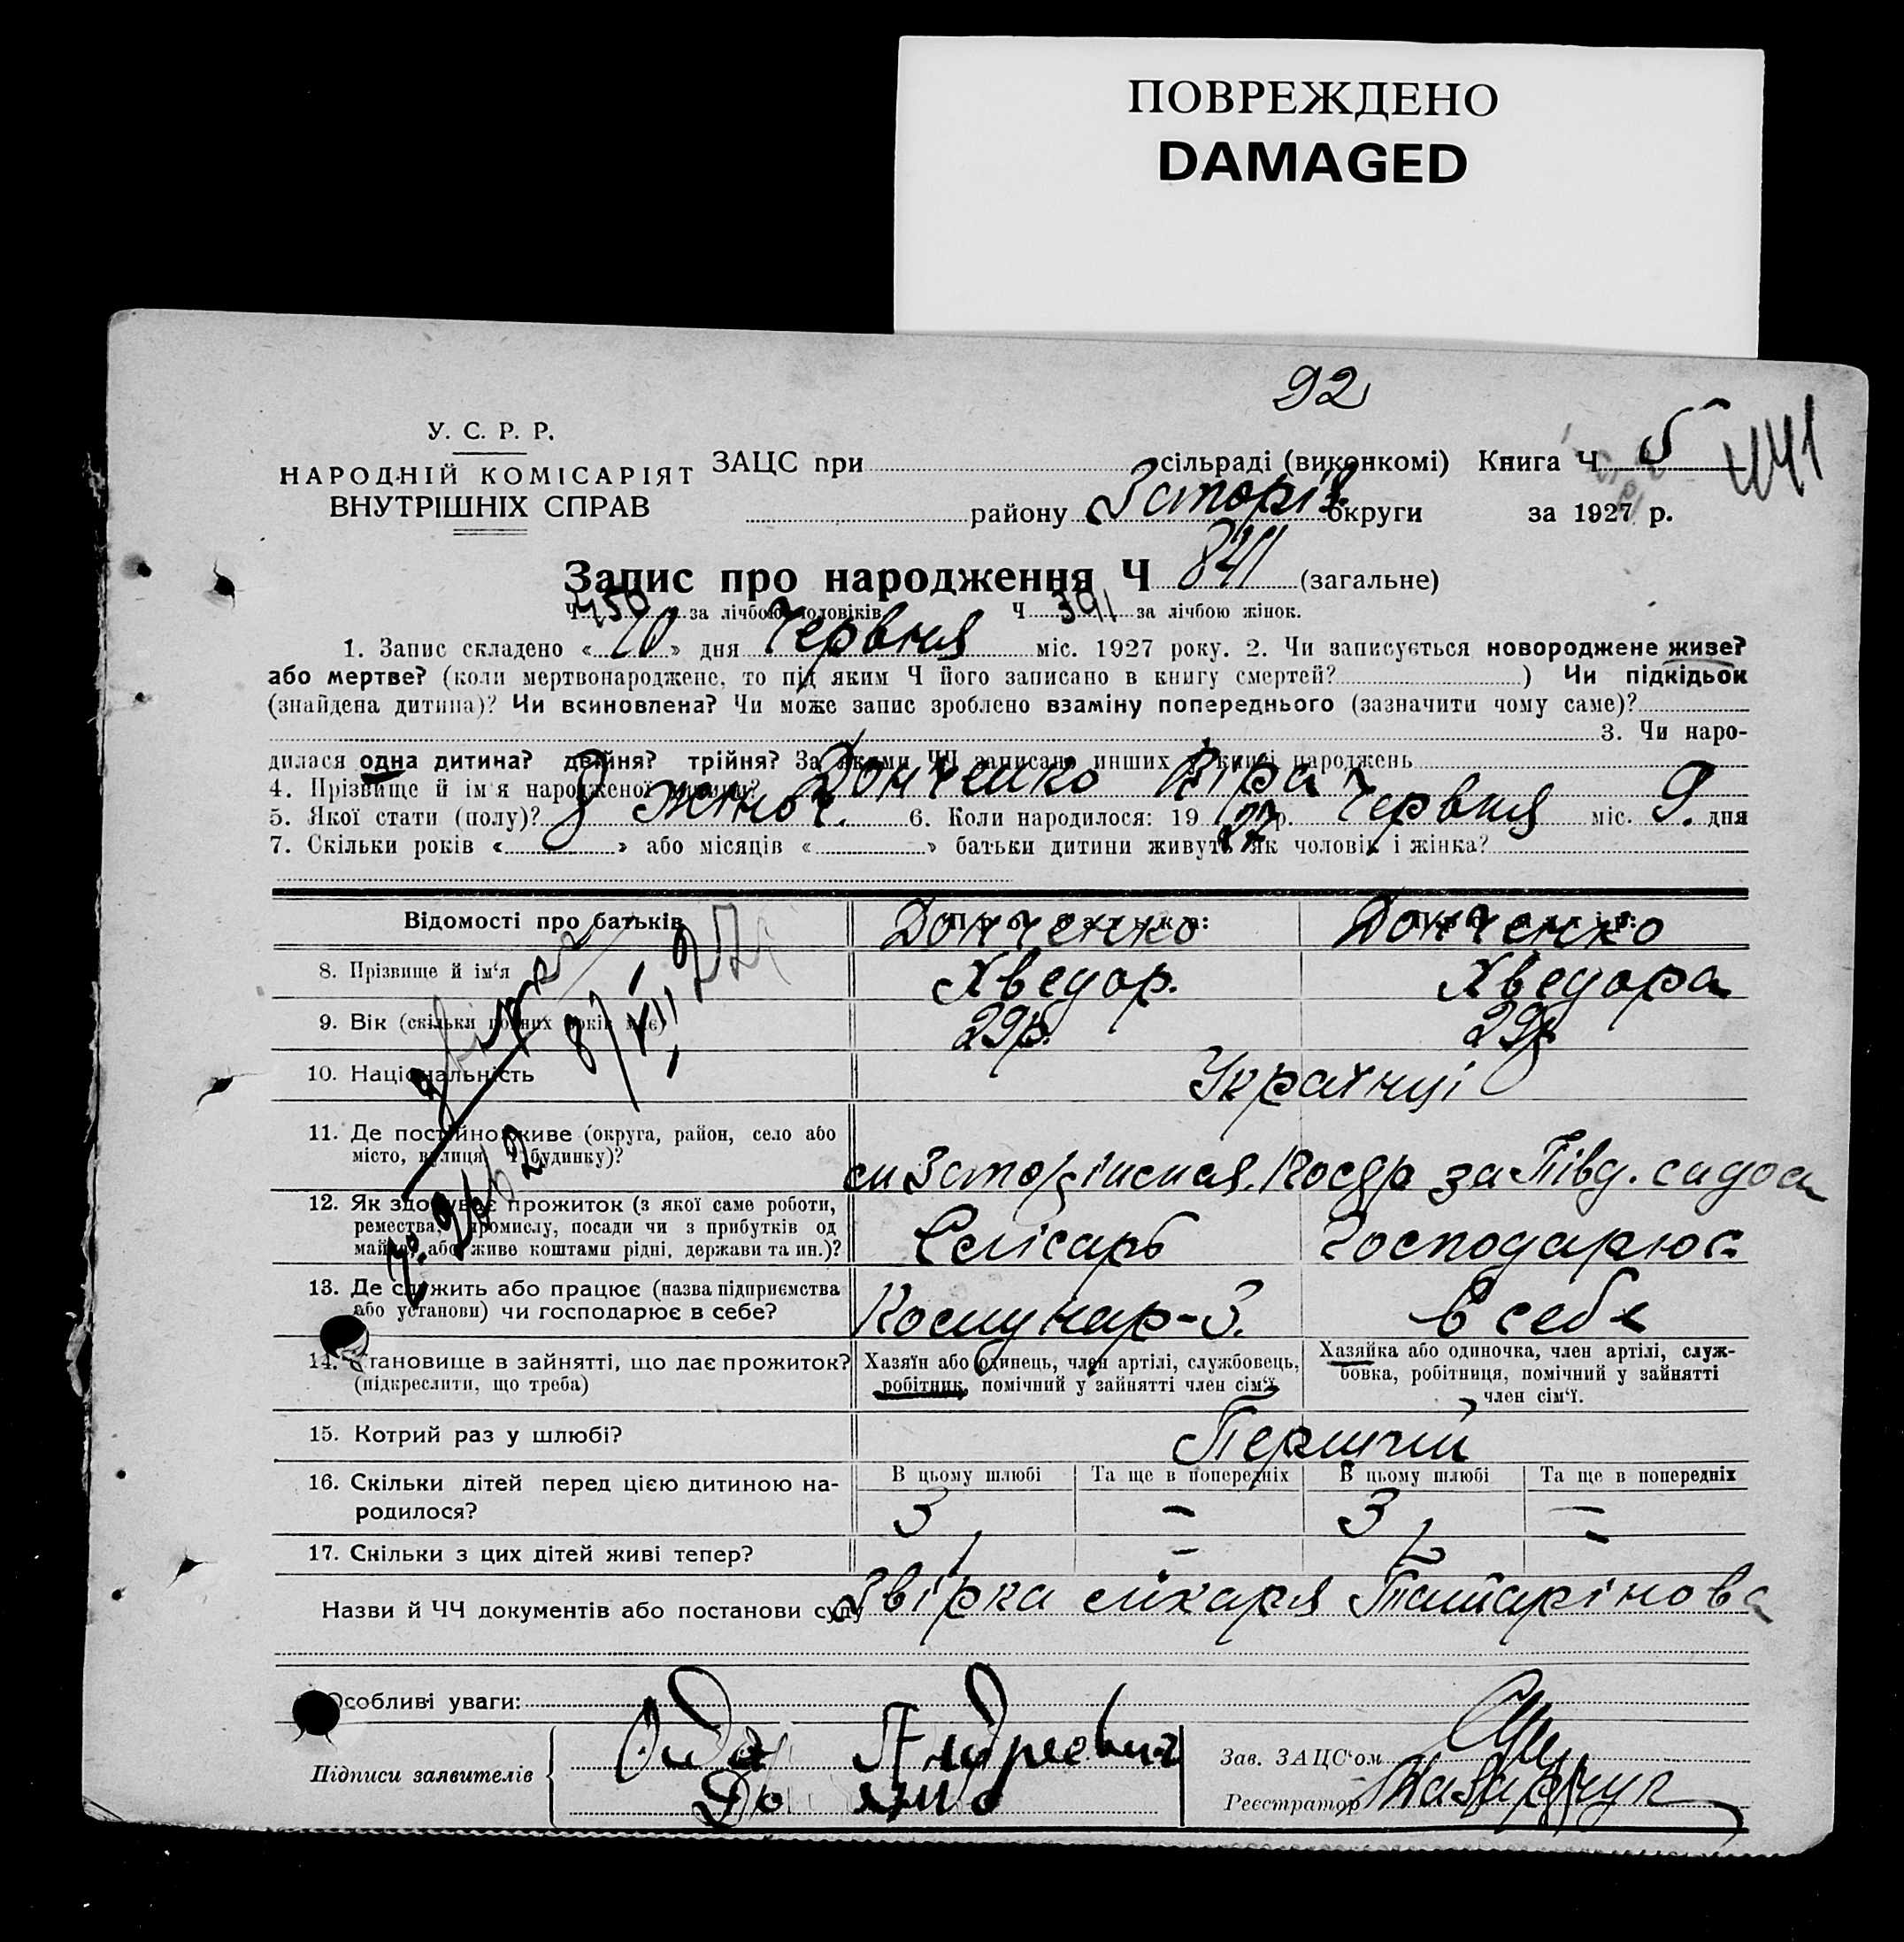 ПОВРЕЖДЕНО
DAMAGED
92
У. С. Р. Р.
НАРОДНІЙ КОМІСАРІЯТ
ВНУТРІШНІХ СПРАВ
ЗАЦС при сільраді (виконкомі) Книга Ч 5
441
району Запоріз. округи за 1927 р.
Запис про народження Ч 841 (загальне)
Ч 450 за лічбою чоловіків Ч 391 за лічбою жінок.
1. Запис складено «10» дня Червня міс. 1927 року. 2. Чи записується новороджене живе?
або мертве? (коли мертвонароджене, то під яким Ч його записано в книгу смертей? ) Чи підкідьок
(знайдена дитина)? Чи всиновлена? Чи може запис зроблено взаміну попереднього (зазначити чому саме)?
3. Чи наро-
дилася одна дитина? двійня? трійня? За якими ЧЧ записано инших в книзі народжень
4. Прізвище й ім'я народженої дитини? Донченко Віра
5. Якої стати (полу)? Жіноч. 6. Коли народилося: 1927 р. Червня міс. 9. дня
7. Скільки років « » або місяців « » батьки дитини живуть як чоловік і жінка?
Відомості про батьків Про батька: Про матір:
8. Прізвище й ім'я Донченко Хведор. Донченко Хведора
9. Вік (скільки повних років має) 29р. 29р.
10. Національність Українці
11. Де постійно живе (округа, район, село або
місто, вулиця, Ч будинку)?
за Півд. садом
12. Як здобуває прожиток (з якої саме роботи,
ремества, промислу, посади чи з прибутків од
майна, або живе коштами рідні, держави та ин.)?
Слісарь Господарює
13. Де служить або працює (назва підприємства
або установи) чи господарює в себе?
Комунар-З. в себе
14. Становище в зайнятті, що дає прожиток?
(підкреслити, що треба)
Хазяїн або одинець, член артілі, службовець,
робітник, помічний у зайнятті член сім'ї.
Хазяйка або одиночка, член артілі, служ-
бовка, робітниця, помічний у зайнятті
член сім'ї.
15. Котрий раз у шлюбі? Перший
16. Скільки дітей перед цією дитиною на-
родилося?
В цьому шлюбі Та ще в попередніх В цьому шлюбі Та ще в попередніх
3 – 3 –
17. Скільки з цих дітей живі тепер? 1 – 1 –
Назви й ЧЧ документів або постанови суду Звірка лікаря Татарінова
Особливі уваги:
Підписи заявителів
Зав. ЗАЦС'ом
Реєстратор Назарчук